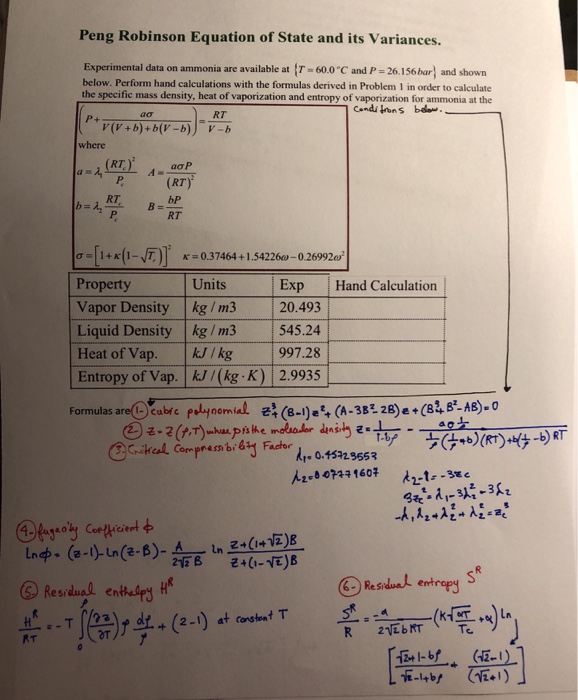 Peng Robinson Equation of State and its Variances.
Experimental data on ammonia are available at {T = 60.0 °C and P = 26.156 bar} and shown
below. Perform hand calculations with the formulas derived in Problem 1 in order to calculate
the specific mass density, heat of vaporization and entropy of vaporization for ammonia at the
conditions below.
(P + aσ / (V(V+b)+b(V−b))) = RT / (V−b)
where
a = λ₁ (RT_c)² / P_c    A = aσP / (RT)²
b = λ₂ RT_c / P_c    B = bP / RT
σ = [1+κ(1−√T_r)]²    κ = 0.37464+1.54226ω−0.26992ω²
Property Units Exp Hand Calculation
Vapor Density kg / m3 20.493
Liquid Density kg / m3 545.24
Heat of Vap. kJ / kg 997.28
Entropy of Vap. kJ / (kg·K) 2.9935
Formulas are (1- cubic polynomial z³+(B-1)z²+(A-3B²-2B)z+(B³+B²-AB)=0
(2) z=z(ρ,T) where ρ is the molecular density z = 1/(1-bρ) -
(3. Critical Compressibility Factor
λ₁=0.45723553
λ₂=0.07779607
λ₂-1=-3z_c
3z_c²=λ₁-3λ₂²-2λ₂
-λ₁λ₂+λ₂²+λ₂³=z_c³
(4- fugacity Coefficient φ
Lnφ = (z-1)-Ln(z-B)- A/(2√2 B) Ln (z+(1+√2)B)/(z+(1-√2)B)
(5. Residual enthalpy H^R
H^R/RT = -T ∫₀^ρ (∂z/∂T)_ρ dρ/ρ + (z-1) at constant T
(6- Residual entropy S^R
S^R/R = -a/(2√2 bRT) (K√(αT/T_c) +α) Ln
[ (√2+1-bρ)/(√2-1+bρ) · (√2-1)/(√2+1) ]